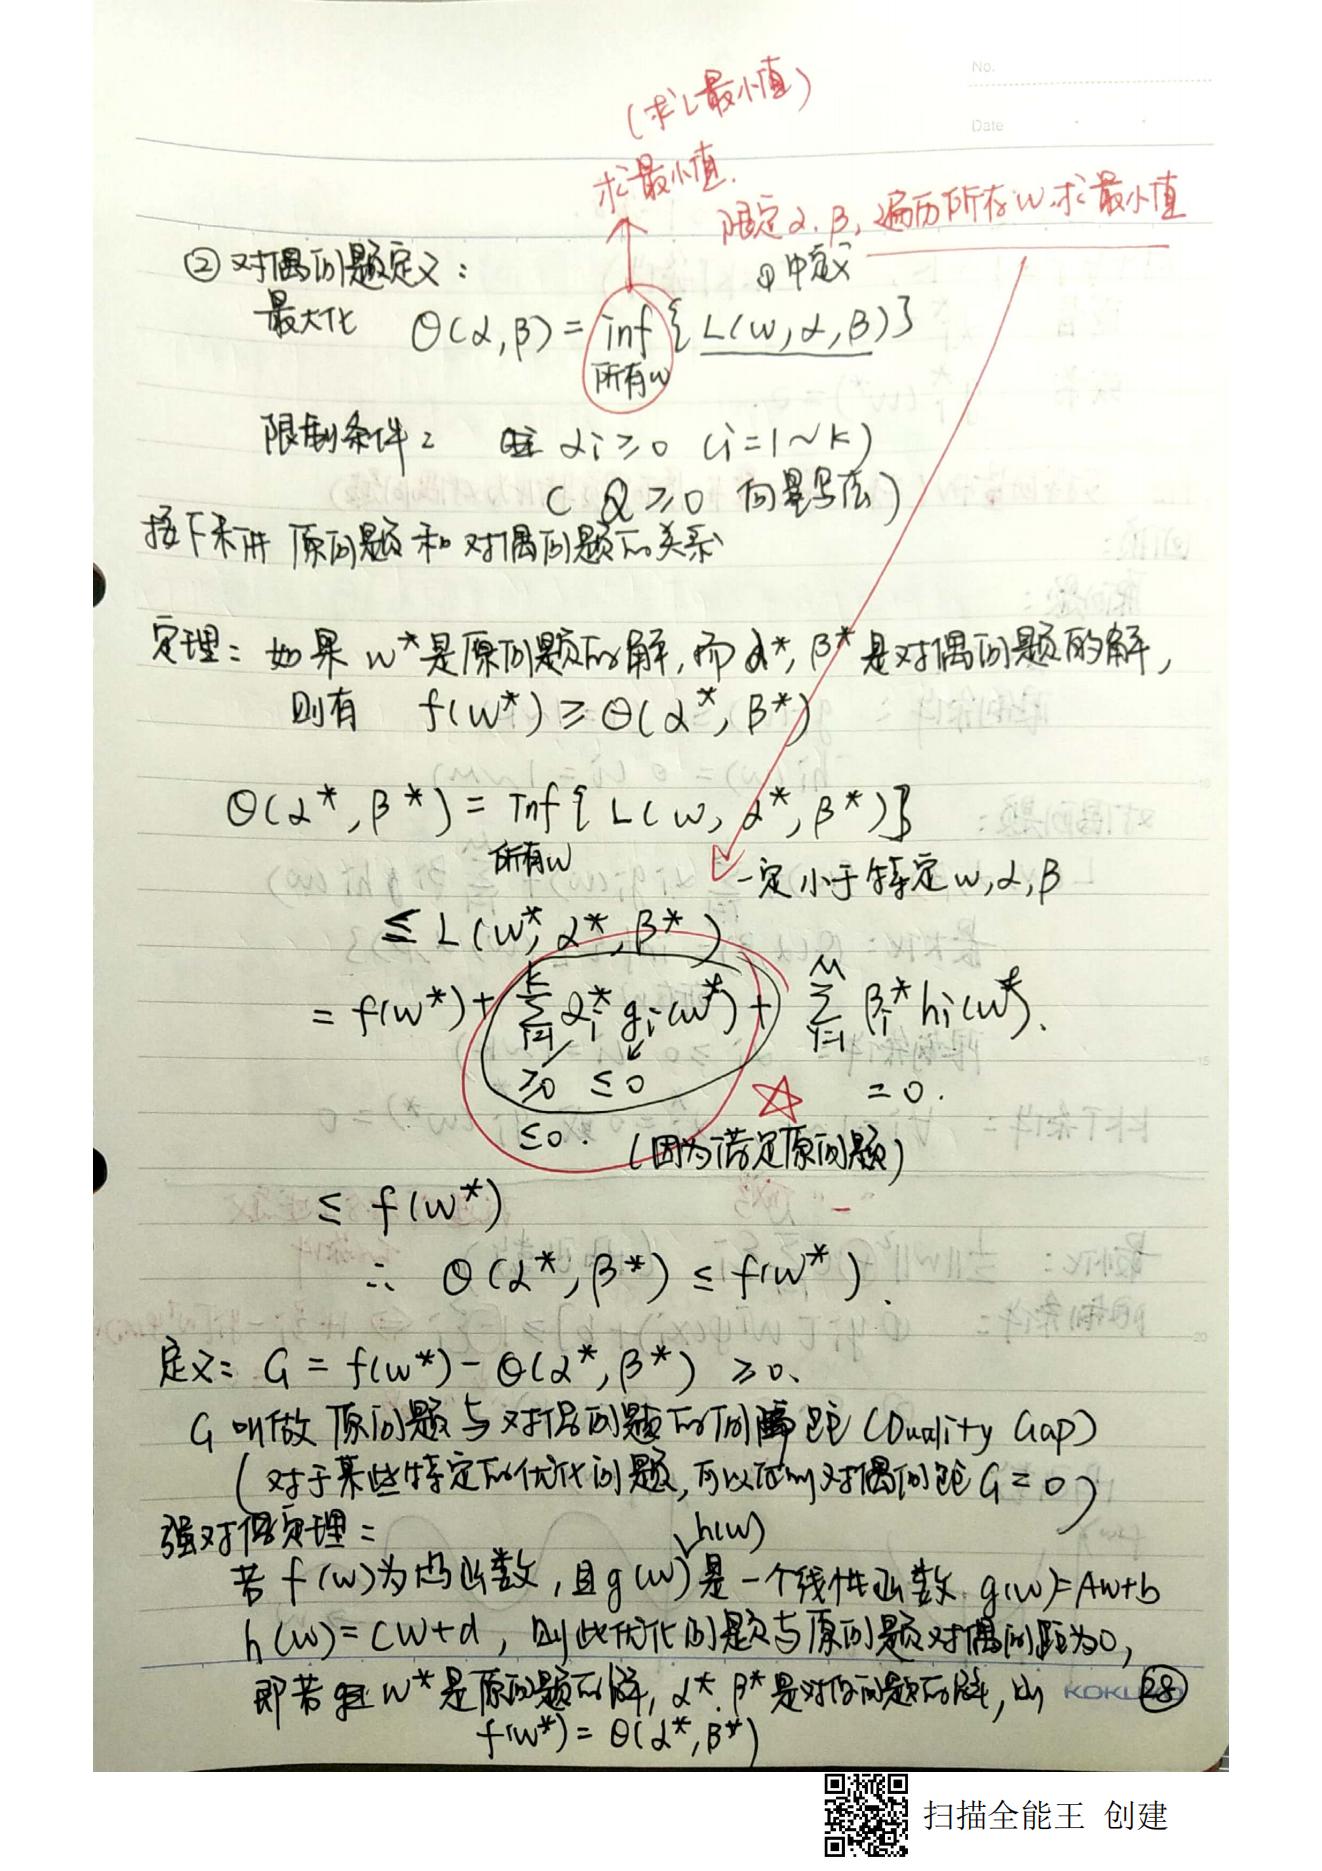 No.
Date
(求L最小值)
求最小值.
限定α.β, 遍历所有w.求最小值
②对偶问题定义:
①中定义
最大化 Θ(α,β) = inf{L(w,α,β)}
所有w
限制条件: αi≥0 (i=1~K)
(α≥0 向量写法)
接下来讲 原问题和对偶问题的关系
定理: 如果 w*是原问题的解,而α*,β*是对偶问题的解,
则有 f(w*)≥Θ(α*,β*)
Θ(α*,β*) = Inf{L(w,α*,β*)}
所有w
一定小于特定w,α,β
≤ L(w*,α*,β*)
= f(w*)+ K∑i=1 αi* gi(w*) + M∑i=1 βi* hi(w*).
≥0 ≤0 = 0.
≤0.
(因为满足原问题)
≤ f(w*)
∴ Θ(α*,β*) ≤ f(w*).
定义: G = f(w*)-Θ(α*,β*) ≥0.
G 叫做 原问题与对偶问题的间距 (Duality Gap)
(对于某些特定的优化问题,可以证明对偶间距G=0)
强对偶定理:
h(w)
若 f(w)为凸函数,且g(w)是一个线性函数. g(w)=Aw+b
h(w)=Cw+d, 则此优化问题与原问题对偶间距为0,
即若 w*是原问题的解, α*.β*是对偶问题的解,则
f(w*) = Θ(α*,β*)
KOKU
28
扫描全能王 创建